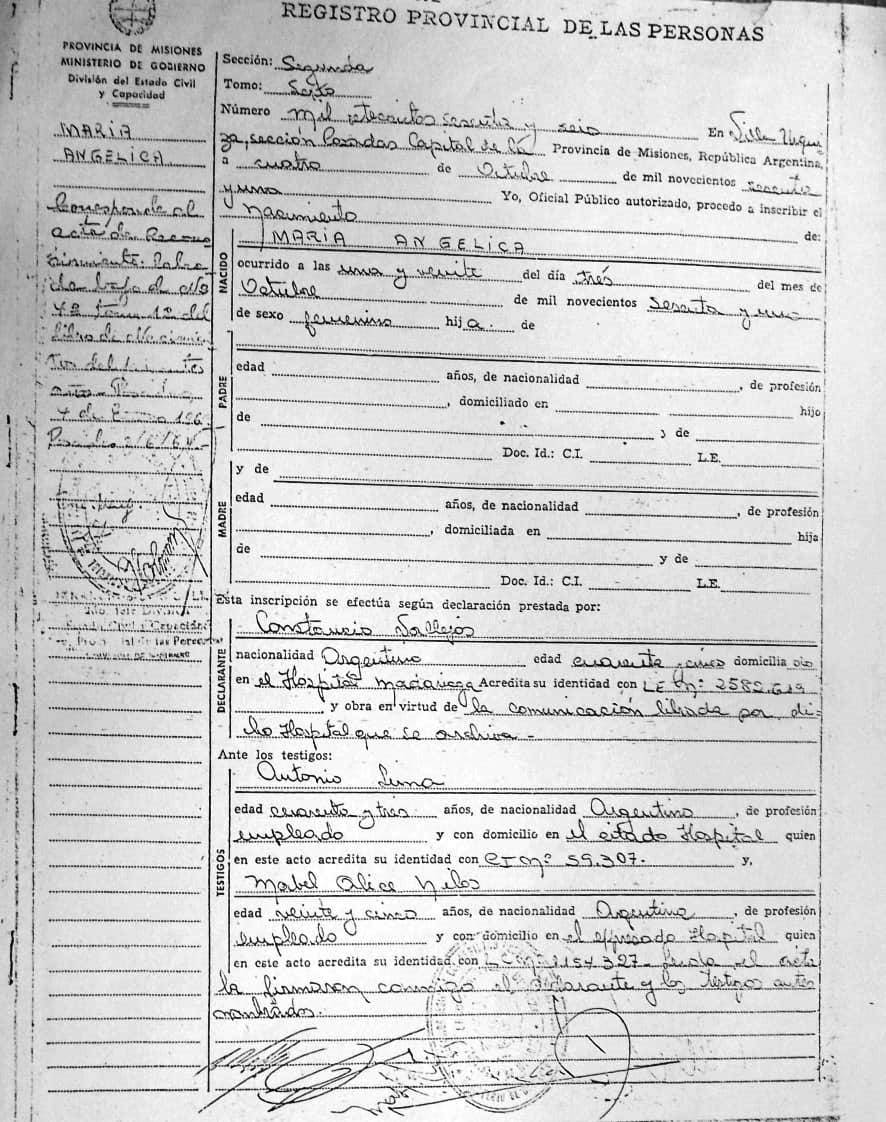 REGISTRO PROVINCIAL DE LAS PERSONAS
PROVINCIA DE MISIONES
MINISTERIO DE GOBIERNO
División del Estado Civil
y Capacidad
MARIA
ANGELICA
Corresponde al
acta de Recono
cimiento: Labra
da bajo el No
42 tomo 1º del
libro de Nacimien
tos del
Posadas
4 de Enero 196
Posadas 2/6/64
Sección: Segunda
Tomo: Sexto
Número mil setecientos sesenta y seis En Villa Urqui
za, sección Posadas Capital de la Provincia de Misiones, República Argentina,
a cuatro de Octubre de mil novecientos sesenta
y uno Yo, Oficial Público autorizado, procedo a inscribir el
Nacimiento de:
NACIDO
MARIA ANGELICA
ocurrido a las una y veinte del día trés del mes de
Octubre de mil novecientos sesenta y uno
de sexo femenino hija de
PADRE
edad años, de nacionalidad , de profesión
, domiciliado en hijo
de y de
Doc. Id.: C.I. L.E.
MADRE
y de
edad años, de nacionalidad , de profesión
, domiciliada en hija
de y de
Doc. Id.: C.I. L.E.
Esta inscripción se efectúa según declaración prestada por:
DECLARANTE
Constancio Vallejos
nacionalidad Argentino edad cuarenta cinco domicilia do
en el Hospital Madariaga Acredita su identidad con L.E Nº 2582.619
y obra en virtud de la comunicación librada por di-
cho Hospital que se archiva -
Ante los testigos:
TESTIGOS
Antonio Luna
edad cuarenta y tres años, de nacionalidad Argentino , de profesión
empleado y con domicilio en el citado Hospital quien
en este acto acredita su identidad con CI Nº 59.307. y,
Mabel Alice
edad veinte y cinco años, de nacionalidad Argentina , de profesión
empleado y con domicilio en el expresado Hospital quien
en este acto acredita su identidad con Leida el acta
la firmaron conmigo el declarante y los testigos antes
nombrados.